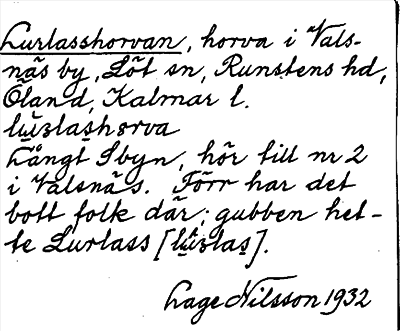 Lurlasshorvan, horva i Vals-
näs by, Löt sn, Runstens hd,
Öland, Kalmar l.
lu̱ʒlas̱hɘrva
Långt I byn, hör till nr 2
i Valsnäs. Förr har det
bott folk där; gubben het-
te Lurlass [lu̱ʒlas̱].
Lage Nilsson 1932